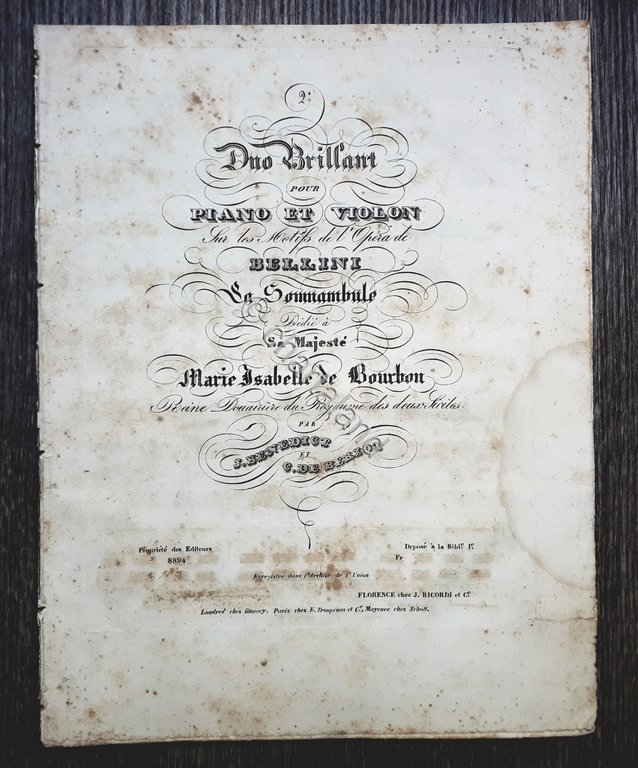 2e
Duo Brillant
POUR
PIANO ET VIOLON
Sur les Motifs de l'Opéra de
BELLINI
La Somnambule
Dédié à
Sa Majesté
Marie Isabelle de Bourbon
Reine Douairière du Royaume des deux Siciles.
PAR
J. BENEDICT
ET
C. DE BERIOT
Propriété des Editeurs
8894
Deposé à la Bibl.e I.e
Fr
Enregistré dans l'Archive de l'Union
FLORENCE chez J. RICORDI et C.e
Londres chez Boosey, Paris chez E. Troupenas et C.e, Mayence chez Schott.